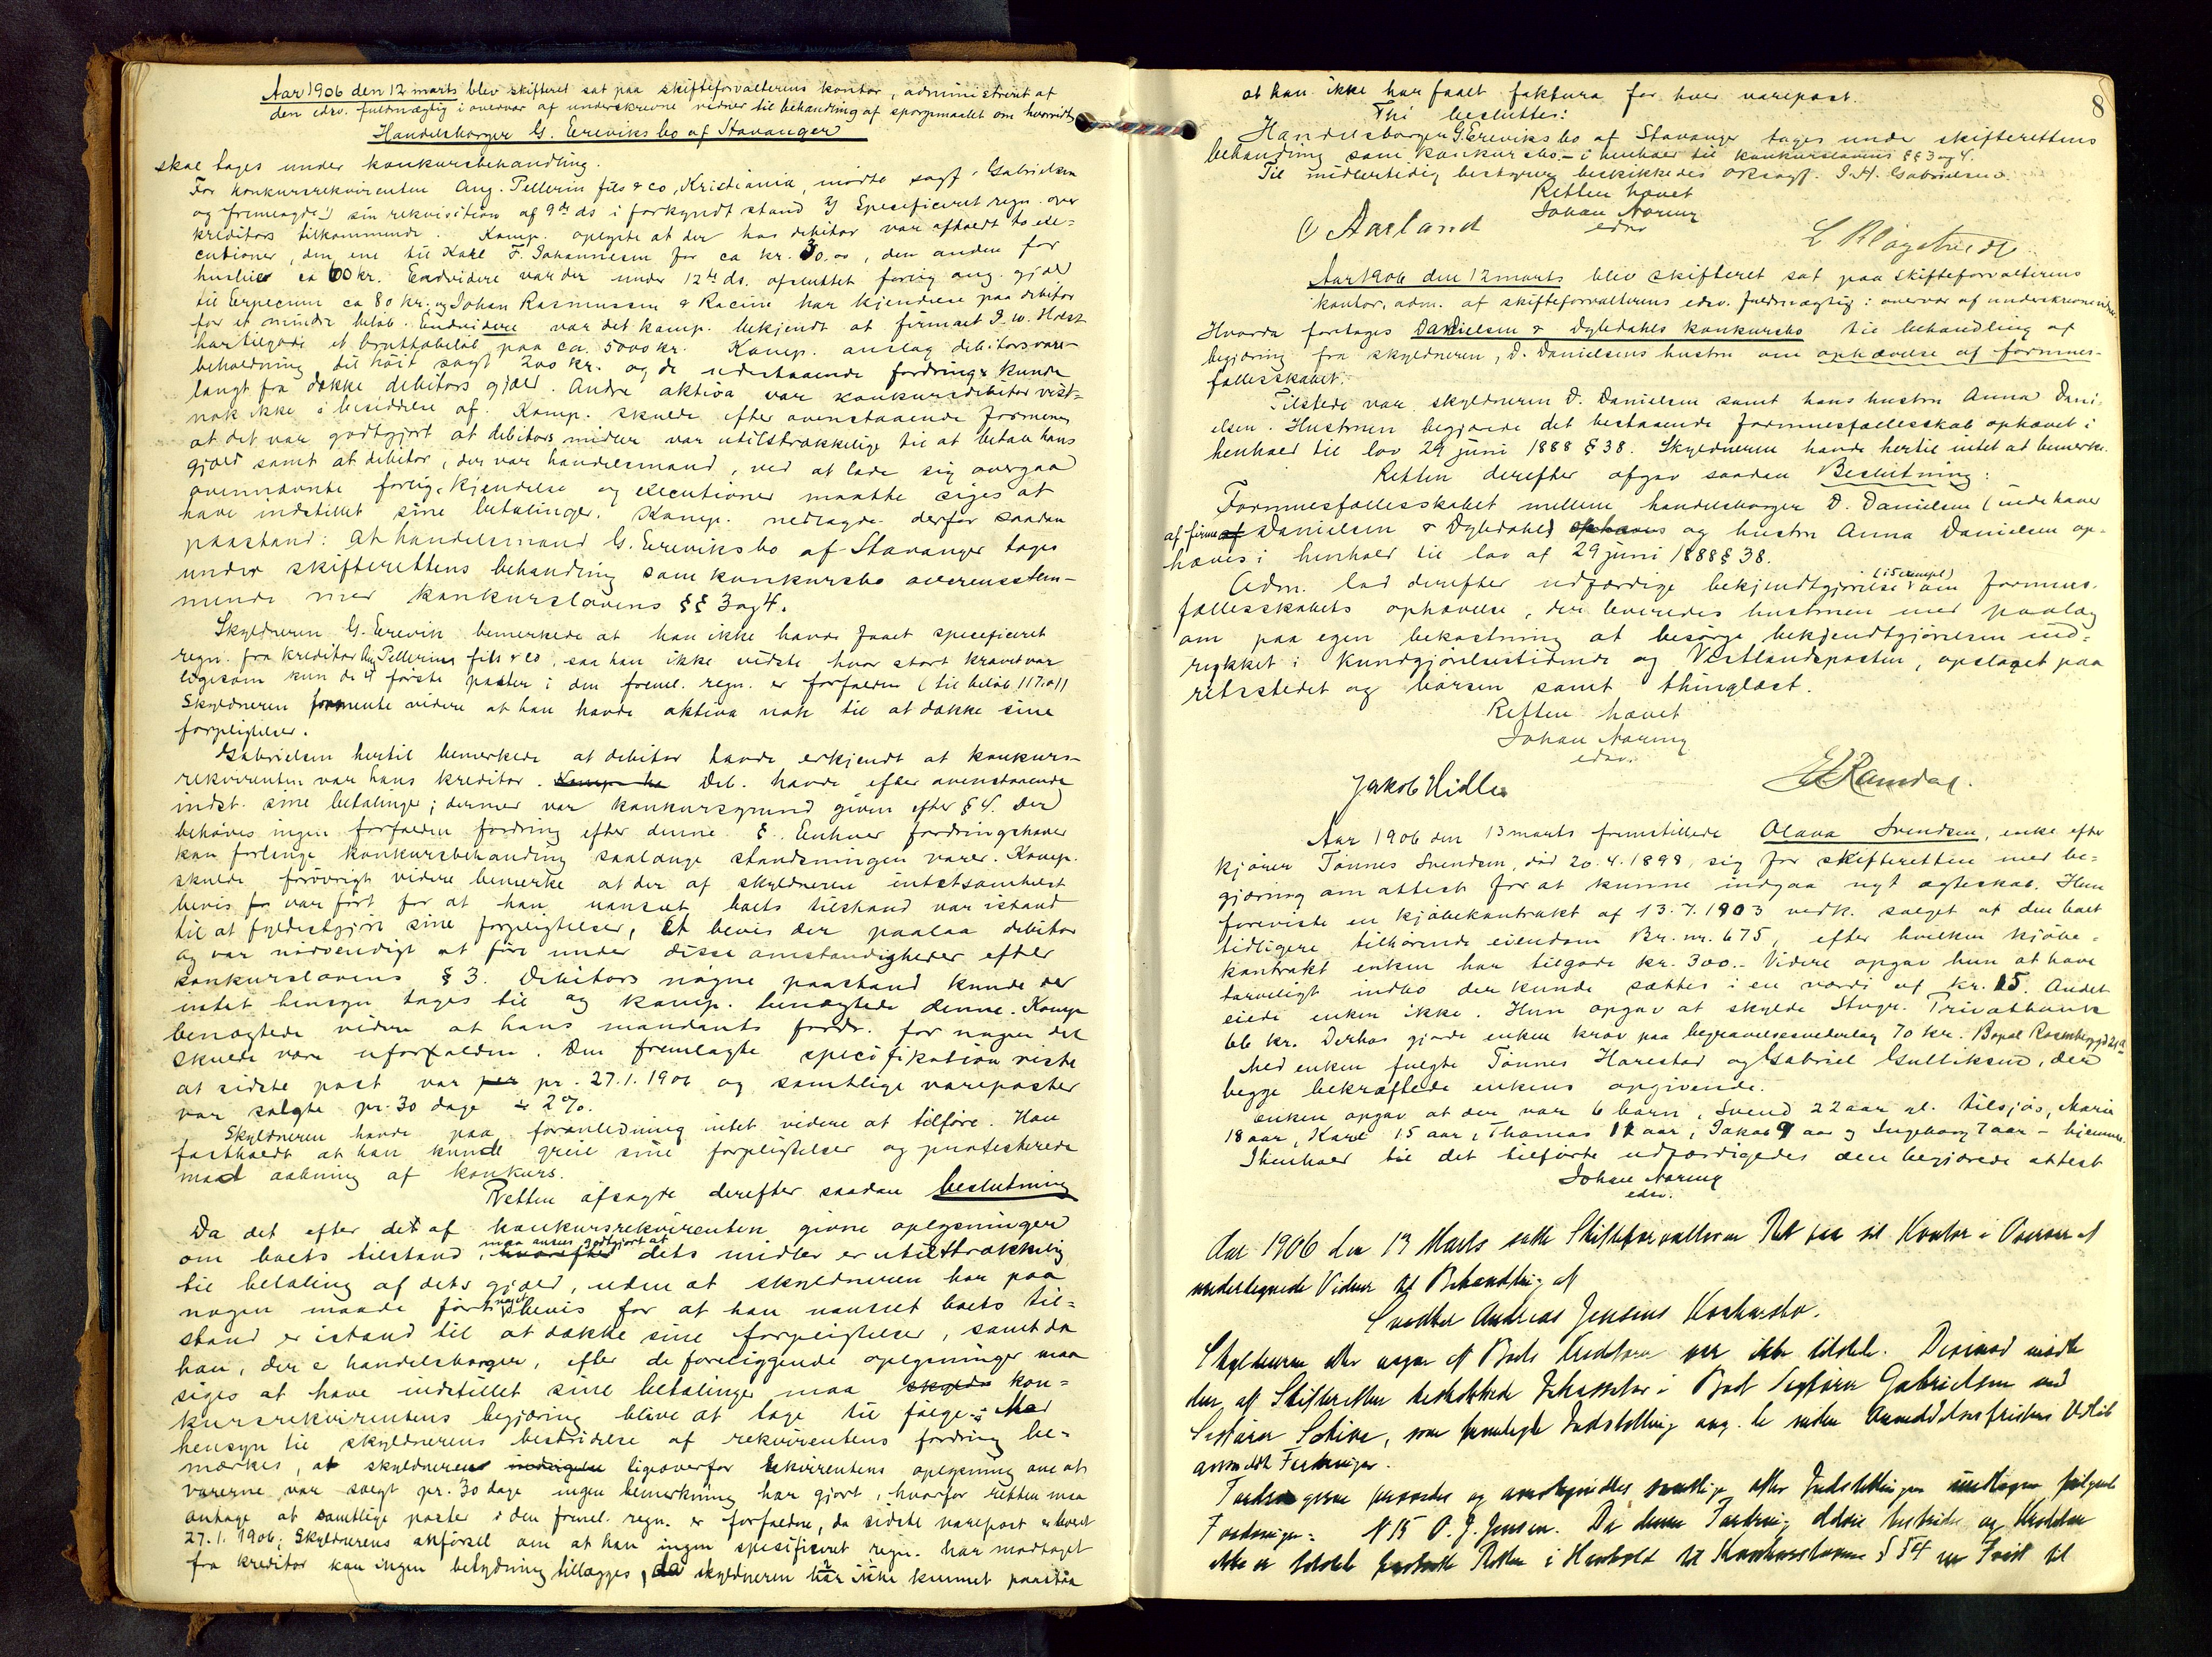 Aar 1906 den 12 marts blev skifteret sat paa skifteforvalterens kontor, administreret af
den edsv. fuldmægtig i overvær af underskrevne vidner til behandling af spørgsmaalet om hvorvidt
Handelsborger G. Ereviks bo af Stavanger
skal tages under konkursbehandling.
For konkursrekvirenten Aug. Pellerin fils & co, Kristiania, mødte sagf. Gabrielsen
og fremlagde sin rekvisition af 9de ds i forkyndt stand Specificeret regn. over
kreditors tilkommende. Komp. oplyste at der hos debitor var afholdt to exe-
cutioner, den ene til Karl F. Johannesen for ca kr. 30,00, den anden for
husleie ca 60 kr. Endvidere var der under 12te ds. afsluttet forlig ang. gjæld
til Erpecum ca 80 kr. og Johan Rasmussen & Racine har kjendelse paa debitor
for et mindre beløb. Endvidere var det komp. bekjendt at firmaet I. W. Holst
har tilgode et bruttobeløb paa ca. 5000 kr. Komp. anslog debitors vare-
beholdning til høit sagt 200 kr. og de udestaaende fordringer kunde
langt fra dække debitors gjæld. Andre aktiva var konkursdebitor vist-
nok ikke i besiddelse af. Komp. skulde efter ovenstaaende formene
at det var godtgjort at debitors midler var utilstrækkelige til at betale hans
gjæld samt at debitor, der var handelsmand, ved at lade sig overgaa
ovennævnte forlig, kjendelse og executioner maatte siges at
have indstillet sine betalinger. Komp. nedlagde derfor saadan
paastand: At handelsmand G. Ereviks bo af Stavanger tages
under skifterettens behandling som konkursbo overensstem-
mende med konkurslovens §§ 3 og 4.
Skyldneren G. Erevik bemerkede at han ikke havde faaet specificeret
regn. fra kreditor Aug Pellerins fils & co, saa han ikke vidste hvor stort kravet var
ligesom kun de 2 første poster i den freml. regn. er forfalden (til beløb 117.01)
Skyldneren formente videre at han havde aktiva nok til at dække sine
forpligtelser.
Gabrielsen hertil bemerkede at debitor havde erkjendt at konkurs-
rekvirenten var hans kreditor. Deb. havde efter ovenstaaende
indst. sine betalinger; dermed var konkursgrund given efter § 4. Der
behøves ingen forfalden fordring efter denne §. Enhver fordringshaver
kan forlange konkursbehandling saalænge standsningen varer. Komp.
skulde forøvrigt videre bemerke at der af skyldneren intetsomhelst
bevis for var ført for at han uanseet boets tilstand var istand
til at fyldestgjøre sine forpligtelser, et bevis der paalaa debitor
og var nødvendigt at føre under disse omstændigheder efter
konkurslovens § 3. Debitors nøgne paastand kunde der
intet hensyn tages til og komp. benægtede denne. Komp
benægtede videre at hans mandants fordr. for nogen del
skulde være uforfalden. Den fremlagte specifikation viste
at sidste post var per pr. 27.1.1906 og samtlige vareposter
var solgte pr. 30 dage ÷ 2%.
Skyldneren havde paa foranledning intet videre at tilføre. Han
fastholdt at han kunde greie sine forpligtelser og protesterede
mod aabning af konkurs.
Retten afsagde derefter saadan beslutning
Da det efter det af konkursrekvirenten givne oplysninger
om boets tilstand, maa ansees godtgjort at dets midler er utilstrækkelig
til betaling af dets gjæld, uden at skyldneren har paa
nogen maade ført noget bevis for at han uanseet boets til-
stand er istand til at dække sine forpligtelser, samt da
han, der er handelsborger, efter de foreliggende oplysninger maa
siges at have indstillet sine betalinger maa skylds kon-
kursrekvirentens begjæring blive at tage til følge. Med
hensyn til skyldnerens bestridelse af rekvirentens fordring be-
mærkes, at skyldneren ligeoverfor rekvirentens oplysning om at
varerne var solgt pr. 30 dage ingen bemerkning har gjort, hvorfor retten maa
antage at samtlige poster i den freml. regn. er forfaldne, da sidste varepost er levert
27.1.1906. Skyldnerens anførsel om at han ingen specificeret regn. har modtaget
fra kreditor kan ingen betydning tillægges, da skyldneren har ikke kunnet paastaa
8
at han ikke har faaet faktura for hver varepost.
Thi besluttes:
Handelsborger G. Ereviks bo af Stavanger tages under skifterettens
behandling som konkursbo - i henhold til konkurslovens §§ 3 og 4.
Til midlertidig bestyrer beskikkedes oksagf. I. H. Gabrielsen.
Retten hævet
Johan Næring
edsv
O Aarland
L Kløgetvedt
Aar 1906 den 12 marts blev skifteret sat paa skifteforvalterens
kontor, adm. af skifteforvalterens edsv. fuldmægtig i overvær af underskrevne vidner
Hvorda foretages Danielsen & Dybdahls konkursbo til behandling af
begjæring fra skyldneren, D. Danielsens hustru om ophævelse af formues-
fællesskabet.
Tilstede var skyldneren D. Danielsen samt hans hustru Anna Dani-
elsen. Hustruen begjærede det bestaaende formuesfællesskab ophævet i
henhold til lov 29 juni 1888 § 38. Skyldneren havde hertil intet at bemerke.
Retten derefter afgav saadan Beslutning:
Formuesfællesskabet mellem handelsborger D. Danielsen (indehaver
af firma Danielsen & Dybdahl) ophæves og hustru Anna Danielsen op-
hæves i henhold til lov af 29 juni 1888 § 38.
Adm. lod derefter udfærdige bekjendtgjørelse (i 5 exempl) om formues-
fællesskabets ophævelse, der leveredes hustruen med paalæg
om paa egen bekostning at besørge bekjendtgjørelsen ind-
rykket i Kundgjørelsestidende og Vestlandsposten, opslaget paa
retsstedet og børsen samt thinglæst.
Retten hævet
Johan Næring
edsv.
Jakob Hidle
E Ramdal.
Aar 1906 den 13 marts fremstillede Olava Svendsen, enke efter
kjører Tønnes Svendsen, død 20.4.1898, sig for skifteretten med be-
gjæring om attest for at kunne indgaa nyt ægteskab. Hun
foreviste en kjøbekontrakt af 13.7.1903 vedk. salget af den boet
tidligere tilhørende eiendom Br. nr. 675, efter hvilken kjøbe-
kontrakt enken har tilgode kr. 300.- Videre opgav hun at have
tarveligt indbo der kunde sættes i en værdi af kr. 15. Andet
eiede enken ikke. Hun opgav at skylde Stvgr. Privatbank
66 kr. Derhos gjorde enken krav paa begravelsesvederlag 70 kr. Bopæl Rosenberggd 21a
Med enken fulgte Tønnes Harestad og Gabriel Gulliksen, der
begge bekræftede enkens opgivende.
Enken opgav at der var 6 børn, Svend 22 aar al. tilsjøs, Marie
18 aar, Karl 15 aar, Thomas 12 aar, Jakob 9 aar og Ingeborg 7 aar - hjemme.
I henhold til det tilførte udfærdigedes den begjærede attest
Johan Næring
edsv.
Aar 1906 den 13 Marts satte Skifteforvalteren Ret paa sit Kontor i Overvær af
undertegnede Vidner til Behandling af
Snedker Andreas Jensens Konkursbo.
Skyldneren eller nogen af Boets Kreditorer var ikke tilstede. Derimod mødte
den af Skifteretten beskikkede Inkassator i Boet Sagfører Gabrielsen ved
Sagfører Sotive, som fremlagde Indstilling ang. de inden Anmeldelsesfristens Udløb
anmeldte Fordringer.
Fordringerne prøvedes og anerkjendtes samtlige efter Indstillingen undtagen følgende
Fordringer: N 15 O. J. Jensen. Da denne Fordring bestrides og Kreditor
ikke er tilstede Retten i Henhold til Konkurslovens § 54 en Frist til